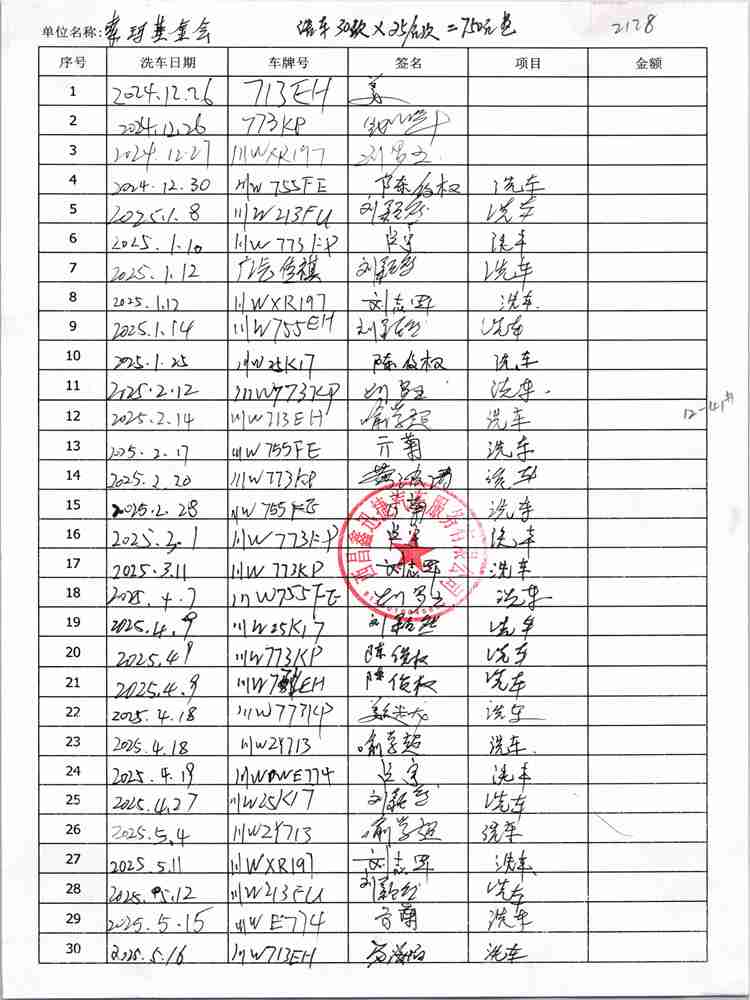 单位名称: 基金会 洗车30次×25元/次=750元 2128
序号 洗车日期 车牌号 签名 项目 金额
1 2024.12.26 713EH
2 2024.12.26 773KP
3 2024.12.27 川WXR197
4 2024.12.30 川W755FE 陈俊权 洗车
5 2025.1.8 川W213FU 洗车
6 2025.1.10 川W773KP 洗车
7 2025.1.12 广汽传祺 洗车
8 2025.1.12 川WXR197 刘志军 洗车.
9 2025.1.14 川W755EH 洗车
10 2025.1.25 川W25K17 陈俊权 洗车
11 2025.2.12 川W773KP 洗车.
12 2025.2.14 川W713EH 喻学超 洗车
12-41#
13 2025.2.17 川W755FE 亓菊 洗车
14 2025.2.20 川W773KP 洗车
15 2025.2.28 川W755FE 洗车
16 2025.3.1 川W773KP 洗车
17 2025.3.11 川W773KP 刘志军 洗车
18 2025.4.7 川W755FE 洗车
19 2025.4.9 川W25K17 洗车
20 2025.4.9 川W773KP 陈俊权 洗车
21 2025.4.9 EH 陈俊权 洗车
22 2025.4.18 川W773KP 洗车
23 2025.4.18 川W2Y713 喻学超 洗车.
24 2025.4.19 E774 洗车
25 2025.4.27 川W25K17 洗车
26 2025.5.4 川W2Y713 喻学超 洗车
27 2025.5.11 川WXR197 刘志军 洗车
28 2025.5.12 川W213FU 洗车
29 2025.5.15 川WE774 亓菊 洗车
30 2025.5.16 川W713EH 洗车
西昌鑫迅捷汽车服务有限公司